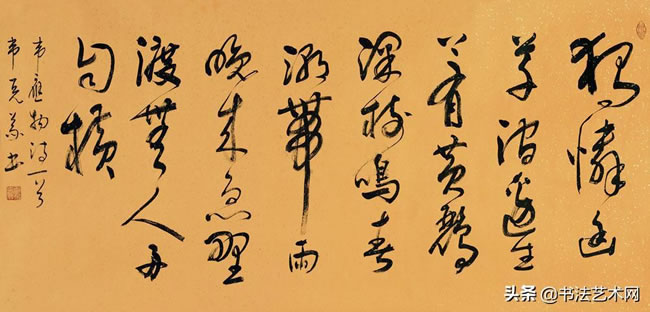 独憐幽
草澗邊生
上有黄鸝
深樹鳴春
潮帶雨
晚來急野
渡無人舟
自横
韋應物詩一首
韋克義書
头条 @书法艺术网